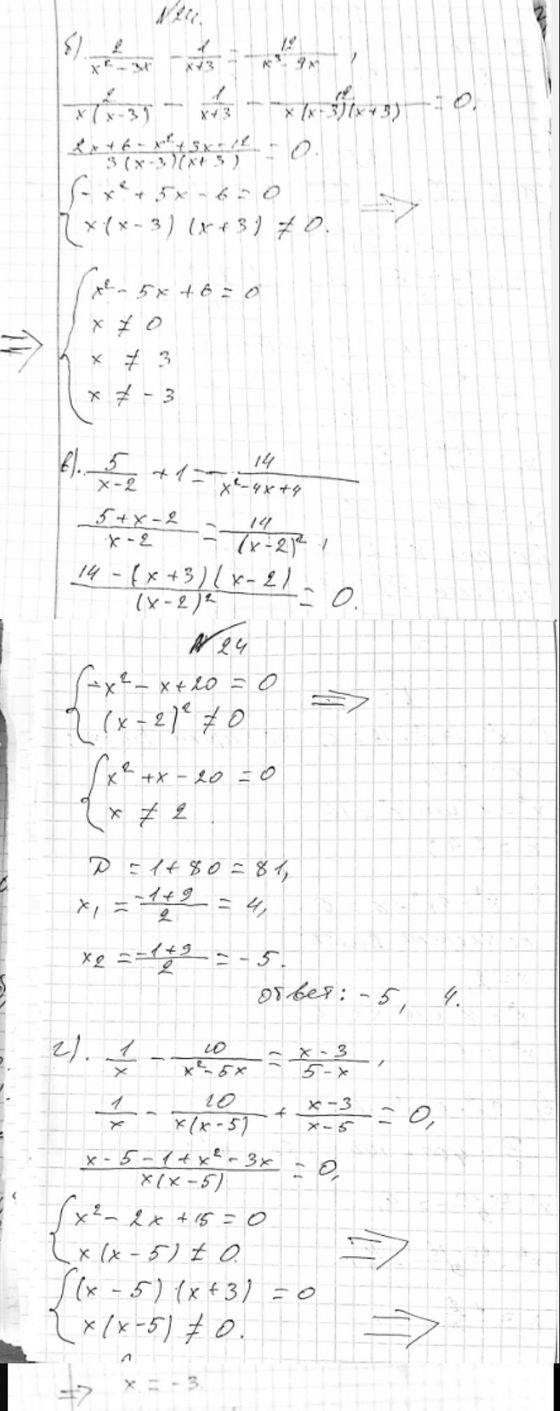 №24.
б). 2/(x² - 3x) - 1/(x+3) = 12/(x³ - 9x),
2/(x(x-3)) - 1/(x+3) - 12/(x(x-3)(x+3)) = 0.
(2x+6-x²+3x-12)/(3(x-3)(x+3)) = 0.
{ -x² + 5x - 6 = 0 ⇒
x(x-3)(x+3) ≠ 0.
{ x² - 5x + 6 = 0
x ≠ 0
⇒ x ≠ 3
x ≠ -3
в). 5/(x-2) + 1 = 14/(x²-4x+4)
(5+x-2)/(x-2) = 14/(x-2)²,
(14-(x+3)(x-2))/(x-2)² = 0.
№24
{ -x² - x + 20 = 0 ⇒
(x-2)² ≠ 0
{ x² + x - 20 = 0
x ≠ 2
D = 1+80 = 81,
x₁ = (-1+9)/2 = 4,
x₂ = (-1+9)/2 = -5.
ответ: -5, 4.
г). 1/x - 10/(x²-5x) = (x-3)/(5-x),
1/x - 10/(x(x-5)) + (x-3)/(x-5) = 0,
(x-5-1+x²-3x)/(x(x-5)) = 0,
{ x² - 2x + 15 = 0
x(x-5) ≠ 0. ⇒
{ (x-5)(x+3) = 0
x(x-5) ≠ 0. ⇒
⇒ x = -3